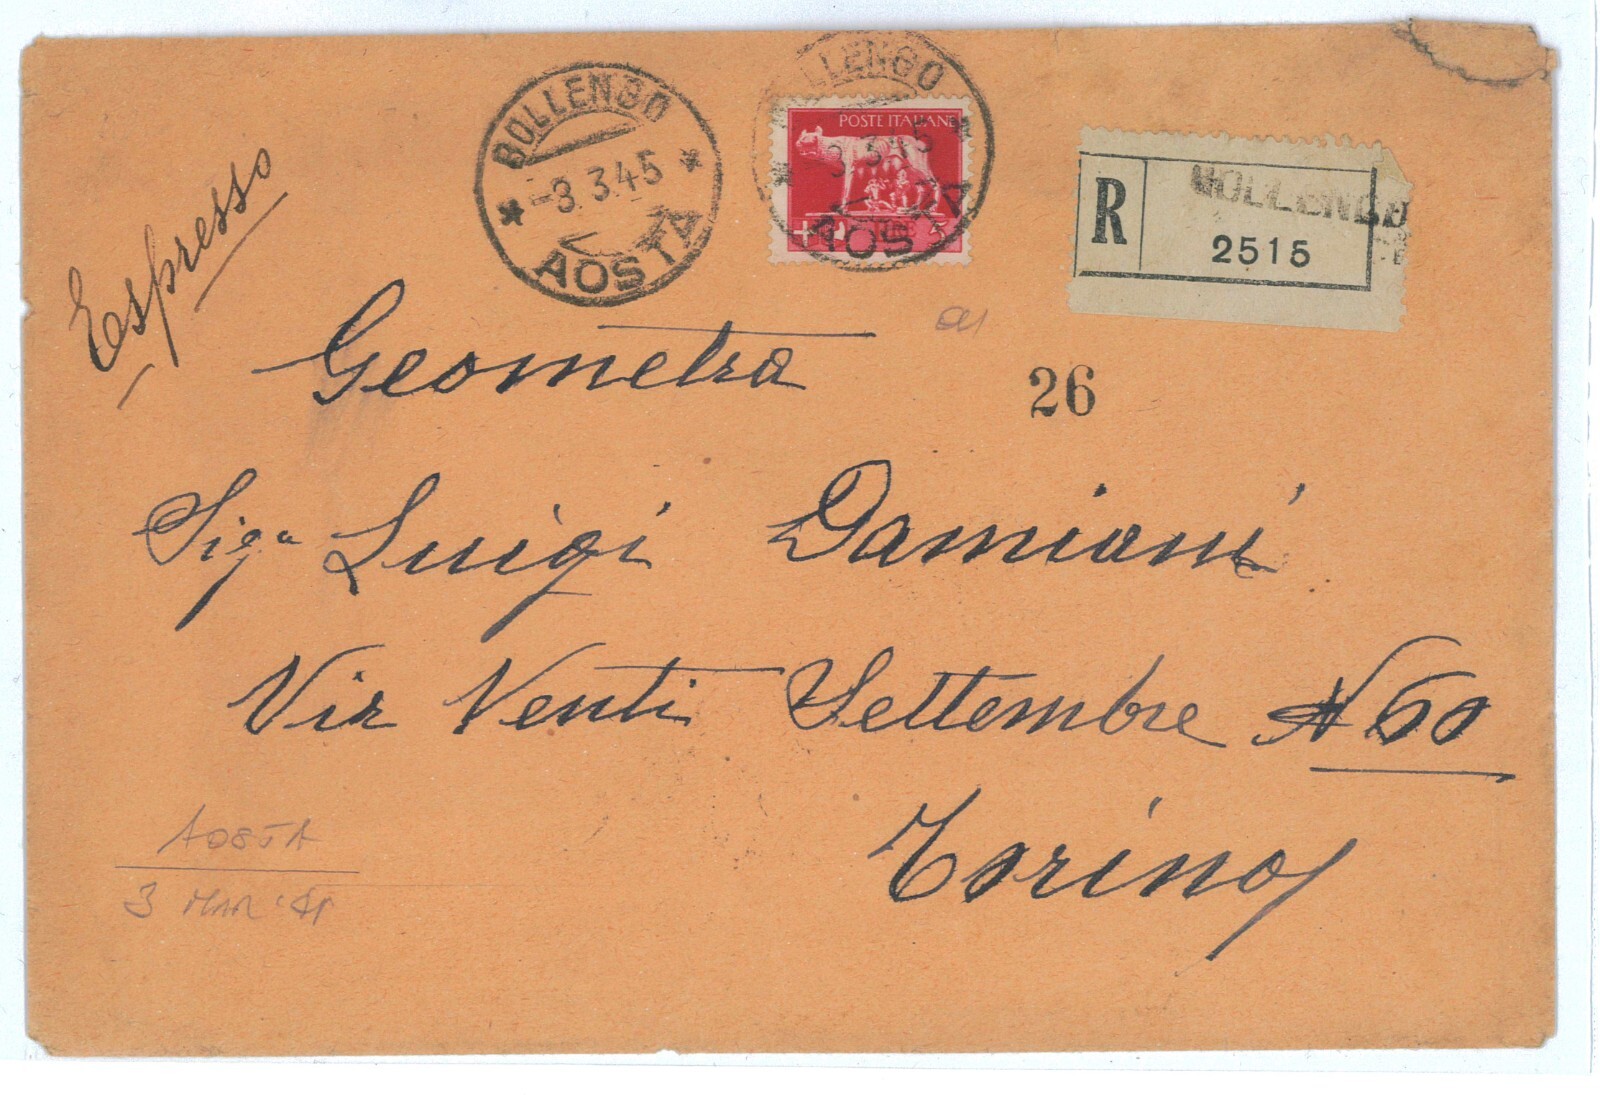 BOLLENGO
-3.3.45
AOSTA
BOLLENGO
3.3.45
AOSTA
POSTE ITALIANE
R
BOLLENGO
2515
Espresso
Geometra
26
Sigr Luigi Damiani
Via Venti Settembre N 60
Torino
AOSTA
3 MAR '45